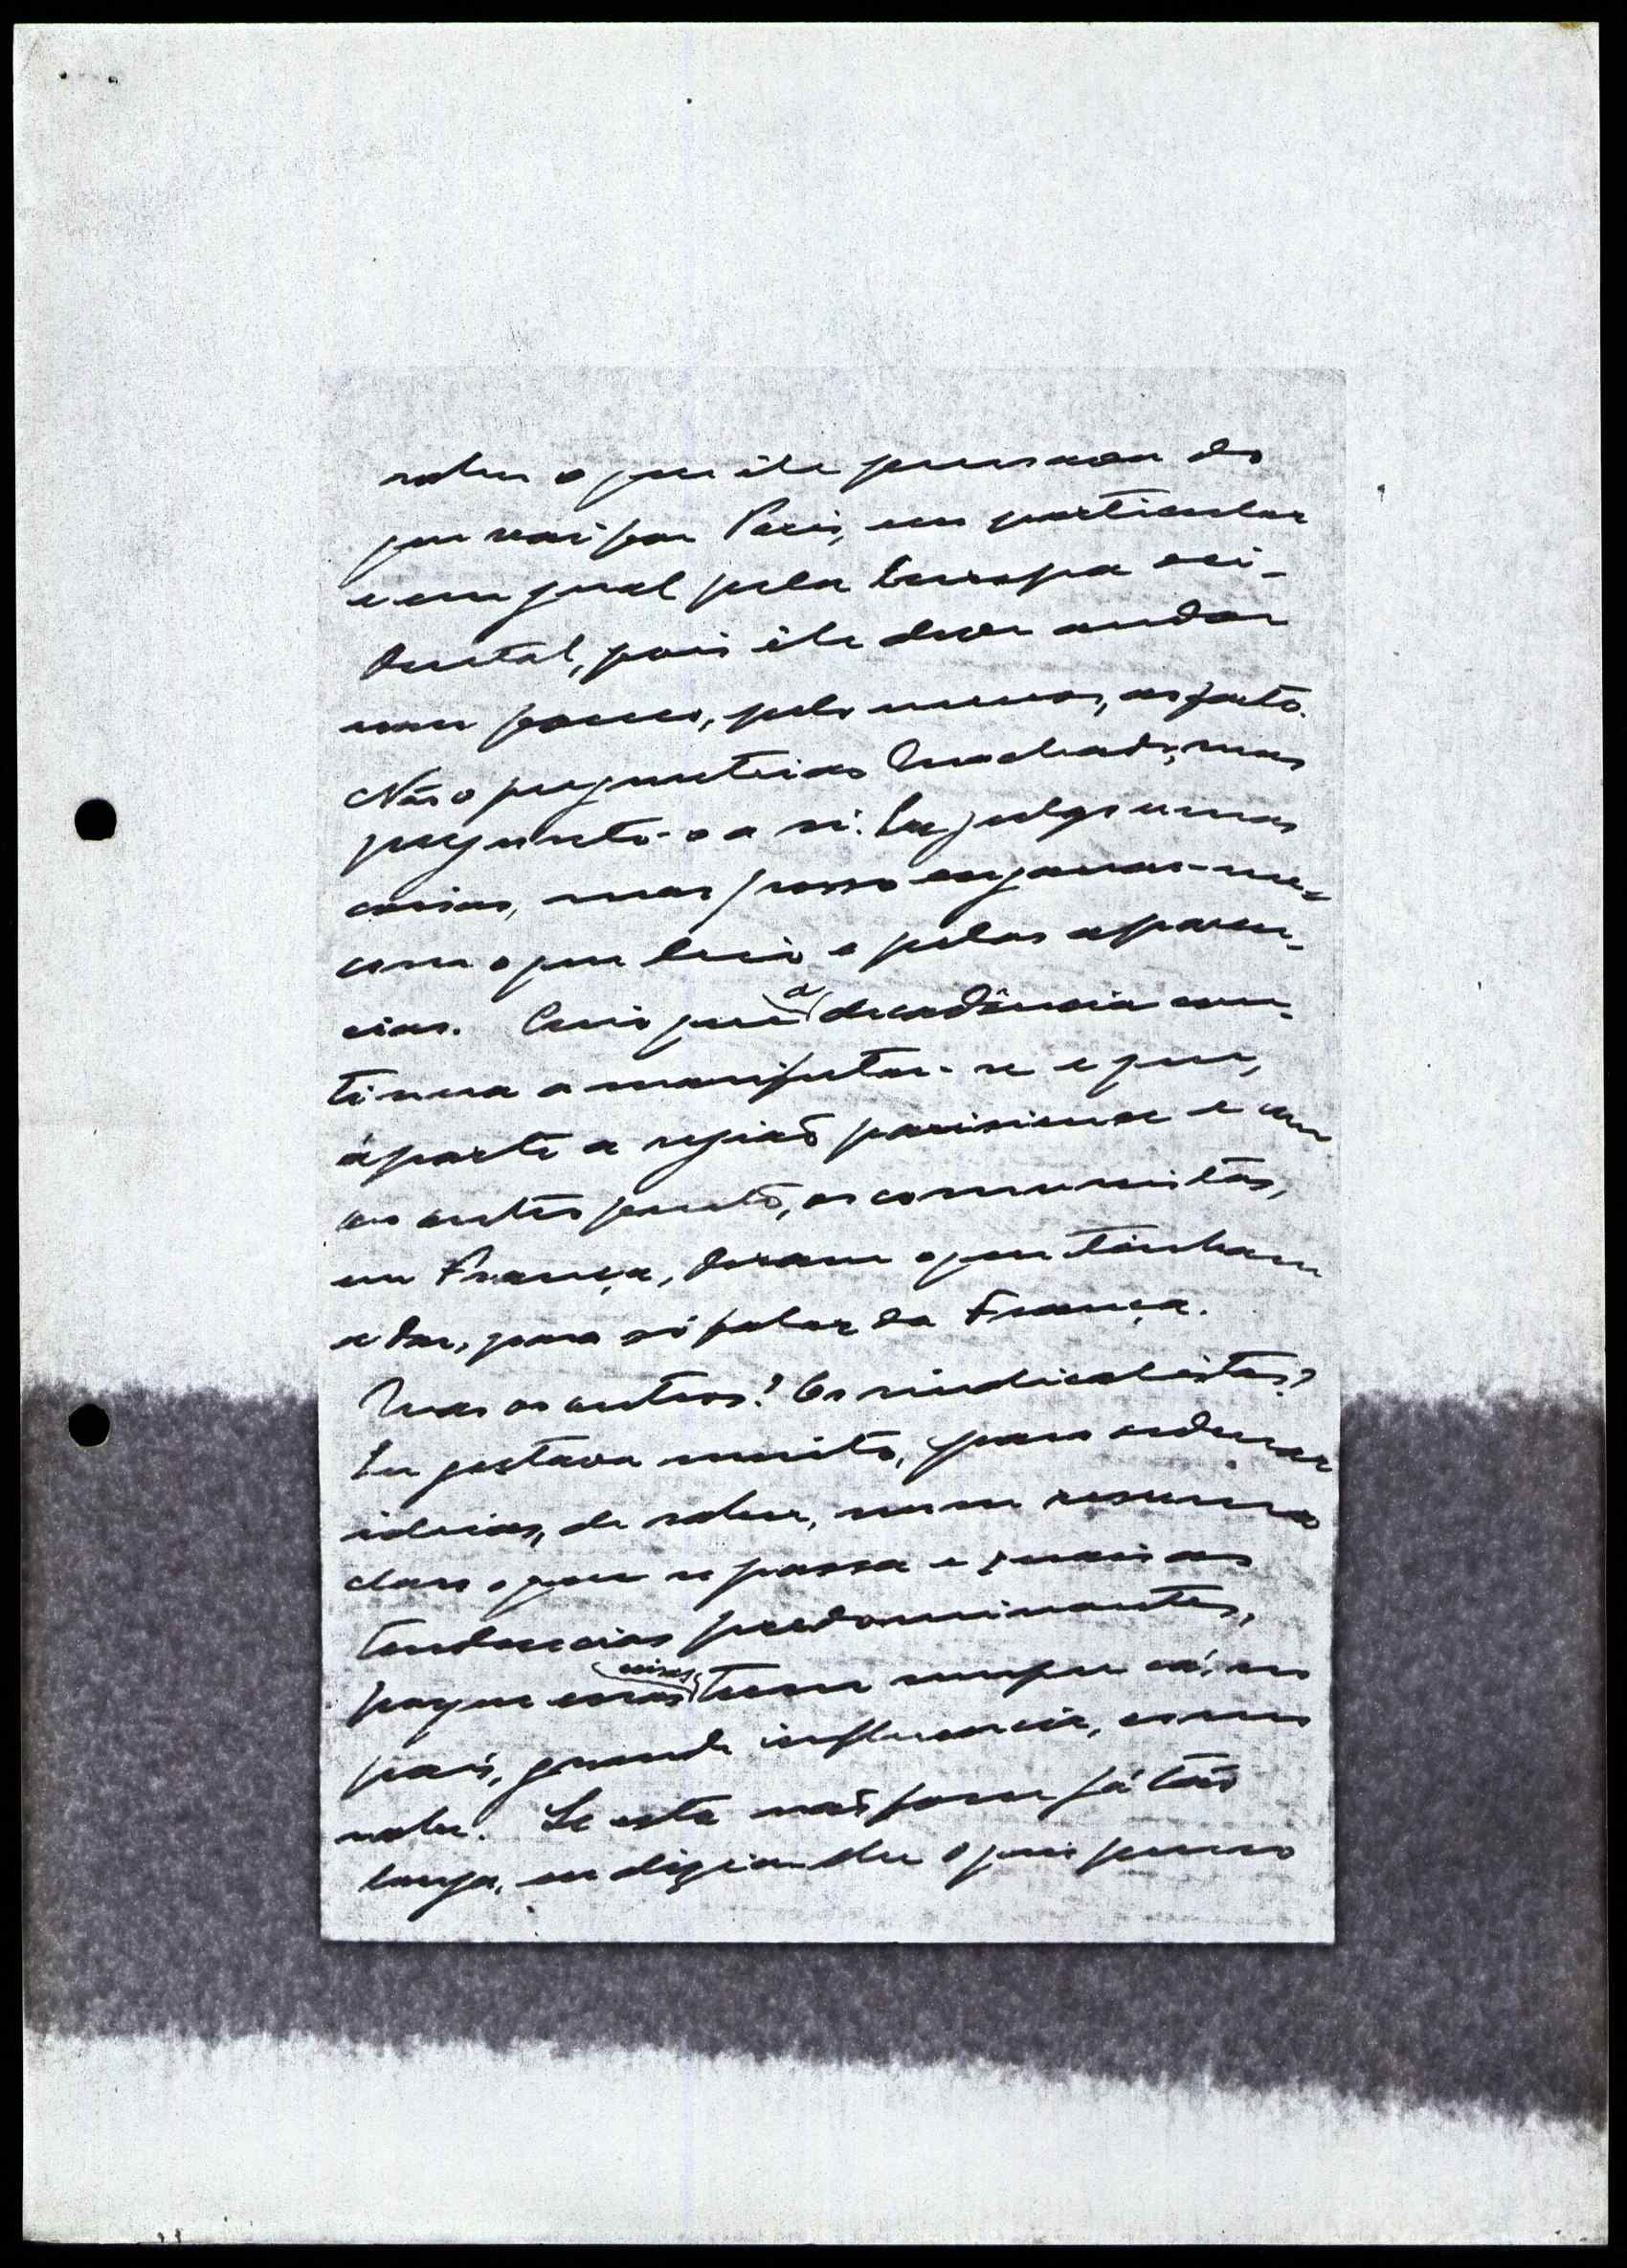 saber o que êle pensava do
que vai por Paris, em particular
e em geral pela Europa oci-
dental, pois êle deve andar
um pouco, pelo menos, ao facto.
Não o perguntei ao Machado, mas
pergunto-o a si. Eu julgo umas
coisas, mas posso enganar-me
com o que leio e pelas aparên-
cias. Creio que a decadência con-
tinua a manifestar-se e que,
àparte a região parisiense e um
ou outro ponto, os comunistas,
em França, deram o que tinham
a dar, para só falar da França.
Mas os outros? Os sindicalistas?
Eu gostava muito, para ordenar
ideias, de saber, num resumo
claro o que se passa e quais as
tendencias predominantes,
porque essas coisas teem sempre cá, no
país, grande influencia, como
sabe. Se esta não fosse já tão
longa, eu dizia-lhe o que penso